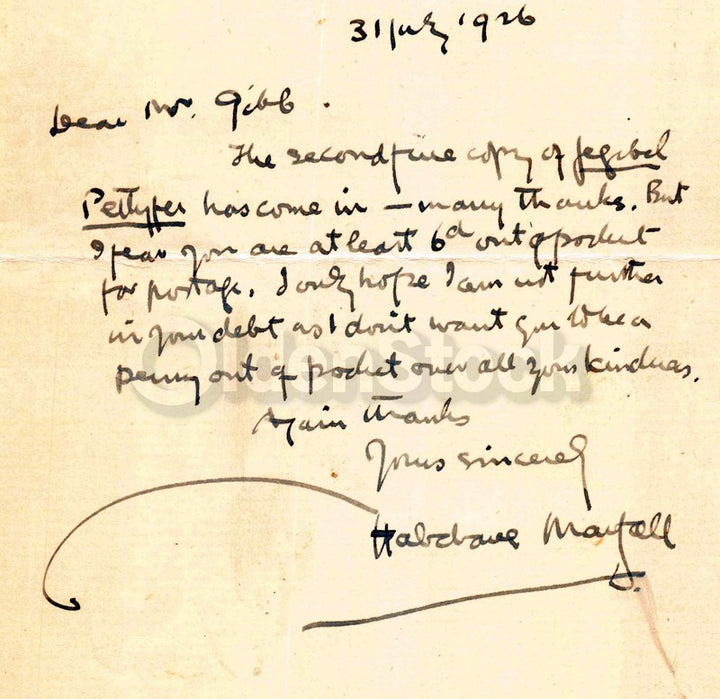 31 July 1926
Dear Mr. Gibb.
The second fine copy of Jezebel
Pettyfer has come in — many thanks. But
I fear you are at least 6d out of pocket
for postage. I only hope I am not further
in your debt as I don't want you to be a
penny out of pocket over all your kindness.
Again thanks
Yours sincerely
Haldane Macfall
OldenStock